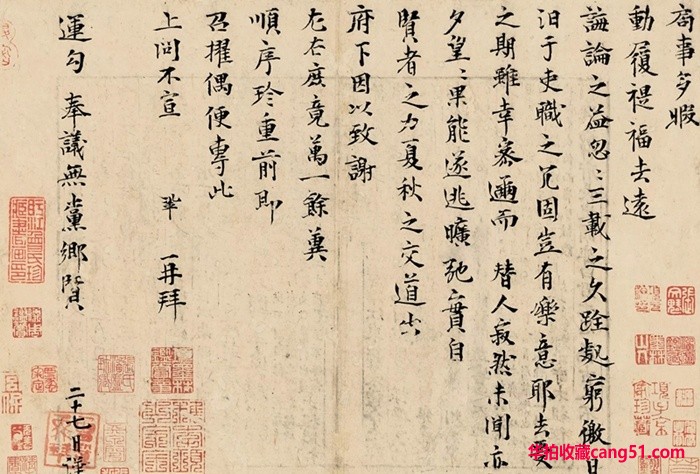 局事多暇
動履禔福去遠
誨論之益忽〻三載之久跧處窮徼日
汩于吏職之冗固豈有樂意耶去受
之期雖幸密邇而 替人寂然未聞亦
夕望〻果能遂逃曠弛實自
賢者之力夏秋之交道出
府下因以致謝
左右庶竟萬一餘冀
順序珍重前即
召擢偶便專此
上問不宣 鞏 再拜
運勾 奉議無黨鄉賢
二十七日謹
华拍收藏cang51.com